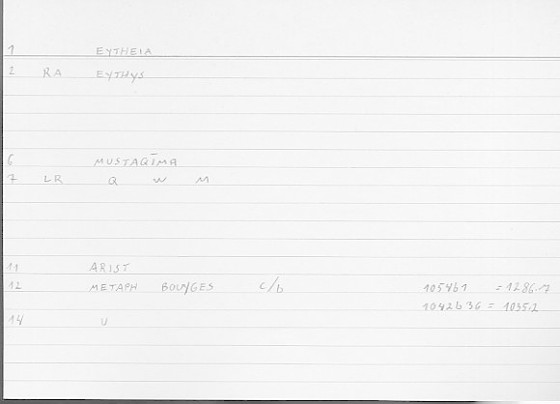 1 EYTHEIA
2 RA EYTHYS
6 MUSTAQĪMA
7 LR Q W M
11 ARIST
12 METAPH BOUYGES c/b 1054b1 = 1286.7
1042b36 = 1035.2
14 U